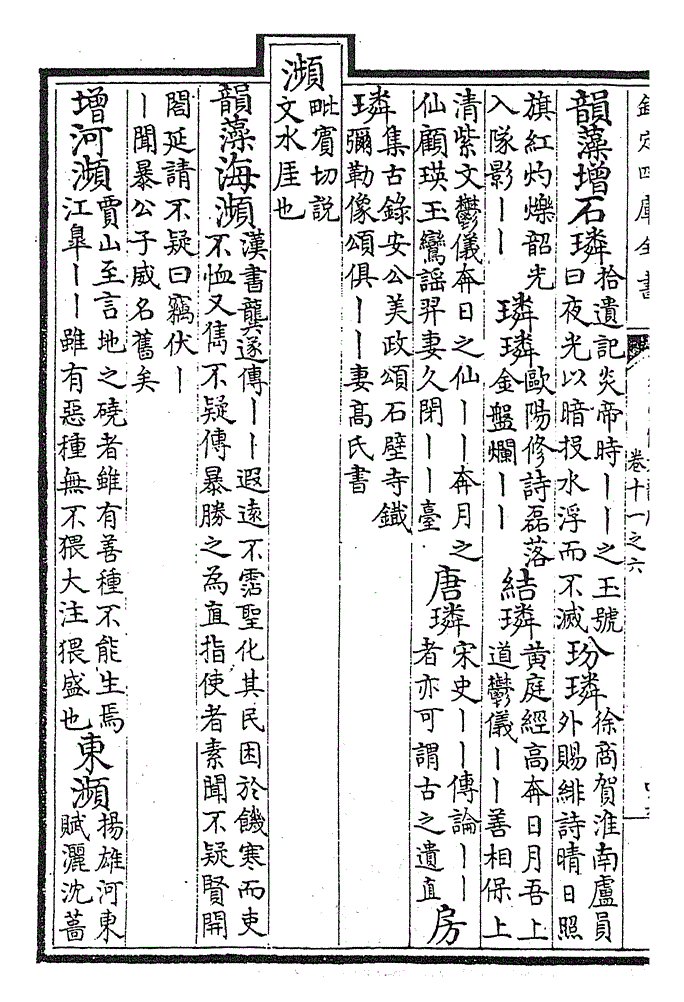 欽定四庫全書
卷十一之六
韻藻增石璘拾遺記炎帝時丨丨之玉號
曰夜光以暗投水浮而不滅
玢璘徐商賀淮南盧員
外賜緋詩晴日照
旗紅灼爍韶光
入隊影丨丨
璘璘歐陽修詩磊落
金盤爛丨丨
結璘黃庭經高奔日月吾上
道鬱儀丨丨善相保上
清紫文鬱儀奔日之仙丨丨奔月之
仙顧瑛玉鸞謠羿妻久閉丨丨臺
唐璘宋史丨丨傳論丨丨
者亦可謂古之遺直
房
璘集古錄安公美政頌石壁寺鐵
彌勒像頌俱丨丨妻高氏書
瀕
毗賓切說
文水厓也
韻藻海瀕漢書龔遂傳丨丨遐遠不霑聖化其民困於饑寒而吏
不恤又儁不疑傳暴勝之為直指使者素聞不疑賢開
閤延請不疑曰竊伏丨
丨聞暴公子威名舊矣
增河瀕賈山至言地之磽者雖有善種不能生焉
江臯丨丨雖有惡種無不猥大注猥盛也
東瀕揚雄河東
賦灑沈菑